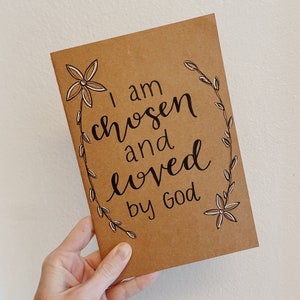 I am
chosen
and
loved
by God